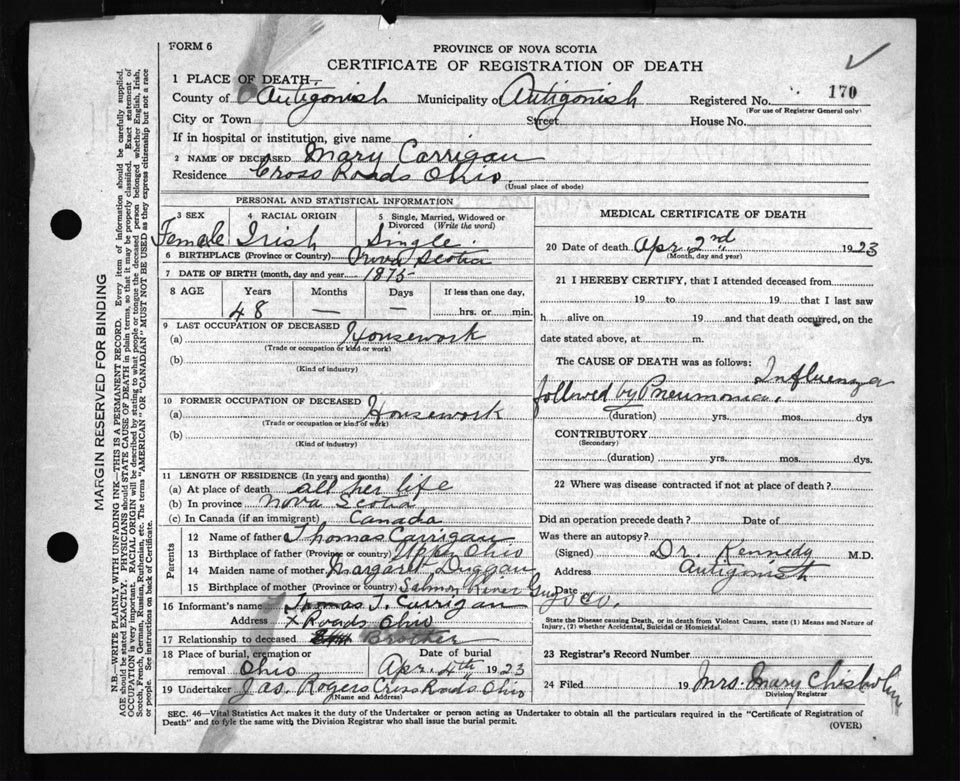 FORM 6
PROVINCE OF NOVA SCOTIA
CERTIFICATE OF REGISTRATION OF DEATH
1 PLACE OF DEATH.
County of Antigonish Municipality of Antigonish Registered No. 170
(For use of Registrar General only)
City or Town Street House No.
If in hospital or institution, give name
2 NAME OF DECEASED Mary Carrigan
Residence Cross Roads Ohio.
(Usual place of abode)
PERSONAL AND STATISTICAL INFORMATION
3 SEX 4 RACIAL ORIGIN 5 Single, Married, Widowed or Divorced (Write the word)
Female Irish Single.
6 BIRTHPLACE (Province or Country) Nova Scotia
7 DATE OF BIRTH (month, day and year) 1875
8 AGE Years Months Days If less than one day,
48 — — hrs. or min.
9 LAST OCCUPATION OF DECEASED
(a) Housework
(Trade or occupation or kind or work)
(b)
(Kind of industry)
10 FORMER OCCUPATION OF DECEASED
(a) Housework
(Trade or occupation or kind of work)
(b)
(Kind of industry)
11 LENGTH OF RESIDENCE (In years and months)
(a) At place of death all her life
(b) In province Nova Scotia
(c) In Canada (if an immigrant) Canada
Parents
12 Name of father Thomas Carrigan
13 Birthplace of father (Province or country) Upper Ohio
14 Maiden name of mother Margaret Duggan
15 Birthplace of mother (Province or country) Salmon River Guy. Co.
16 Informant's name Thomas J. Carrigan
Address X Roads Ohio
17 Relationship to deceased Brother
18 Place of burial, cremation or removal Ohio Date of burial Apr. 4th 1923
19 Undertaker Jas. Rogers Cross Roads Ohio
(Name and Address)
MEDICAL CERTIFICATE OF DEATH
20 Date of death Apr. 2nd 1923
(Month, day and year)
21 I HEREBY CERTIFY, that I attended deceased from
19 to 19 that I last saw
h alive on 19 and that death occurred, on the
date stated above, at m.
The CAUSE OF DEATH was as follows: Influenza
followed by Pneumonia.
(duration) yrs. mos. dys
CONTRIBUTORY
(Secondary)
(duration) yrs. mos. dys.
22 Where was disease contracted if not at place of death?
Did an operation precede death? Date of
Was there an autopsy?
(Signed) Dr. Kennedy M.D.
Address Antigonish
Date
State the Disease causing Death, or in death from Violent Causes, state (1) Means and Nature of
Injury, (2) whether Accidental, Suicidal or Homicidal.
23 Registrar's Record Number
24 Filed 19 Mrs. Mary Chisholm
Division Registrar
SEC. 46—Vital Statistics Act makes it the duty of the Undertaker or person acting as Undertaker to obtain all the particulars required in the "Certificate of Registration of
Death" and to fyle the same with the Division Registrar who shall issue the burial permit.
(OVER)
MARGIN RESERVED FOR BINDING
N.B.—WRITE PLAINLY WITH UNFADING INK—THIS IS A PERMANENT RECORD. Every item of information should be carefully supplied.
AGE should be stated EXACTLY. PHYSICIANS should STATE CAUSE OF DEATH in plain terms, so that it may be properly classified. Exact statement of
OCCUPATION is very important. RACIAL ORIGIN will be described by stating to what people or tongue the deceased person belonged whether English, Irish,
Scotch, French, German, Russian, Ruthenian, etc. The terms "AMERICAN" OR "CANADIAN" MUST NOT BE USED as they express citizenship but not a race
or people. See instructions on back of Certificate.